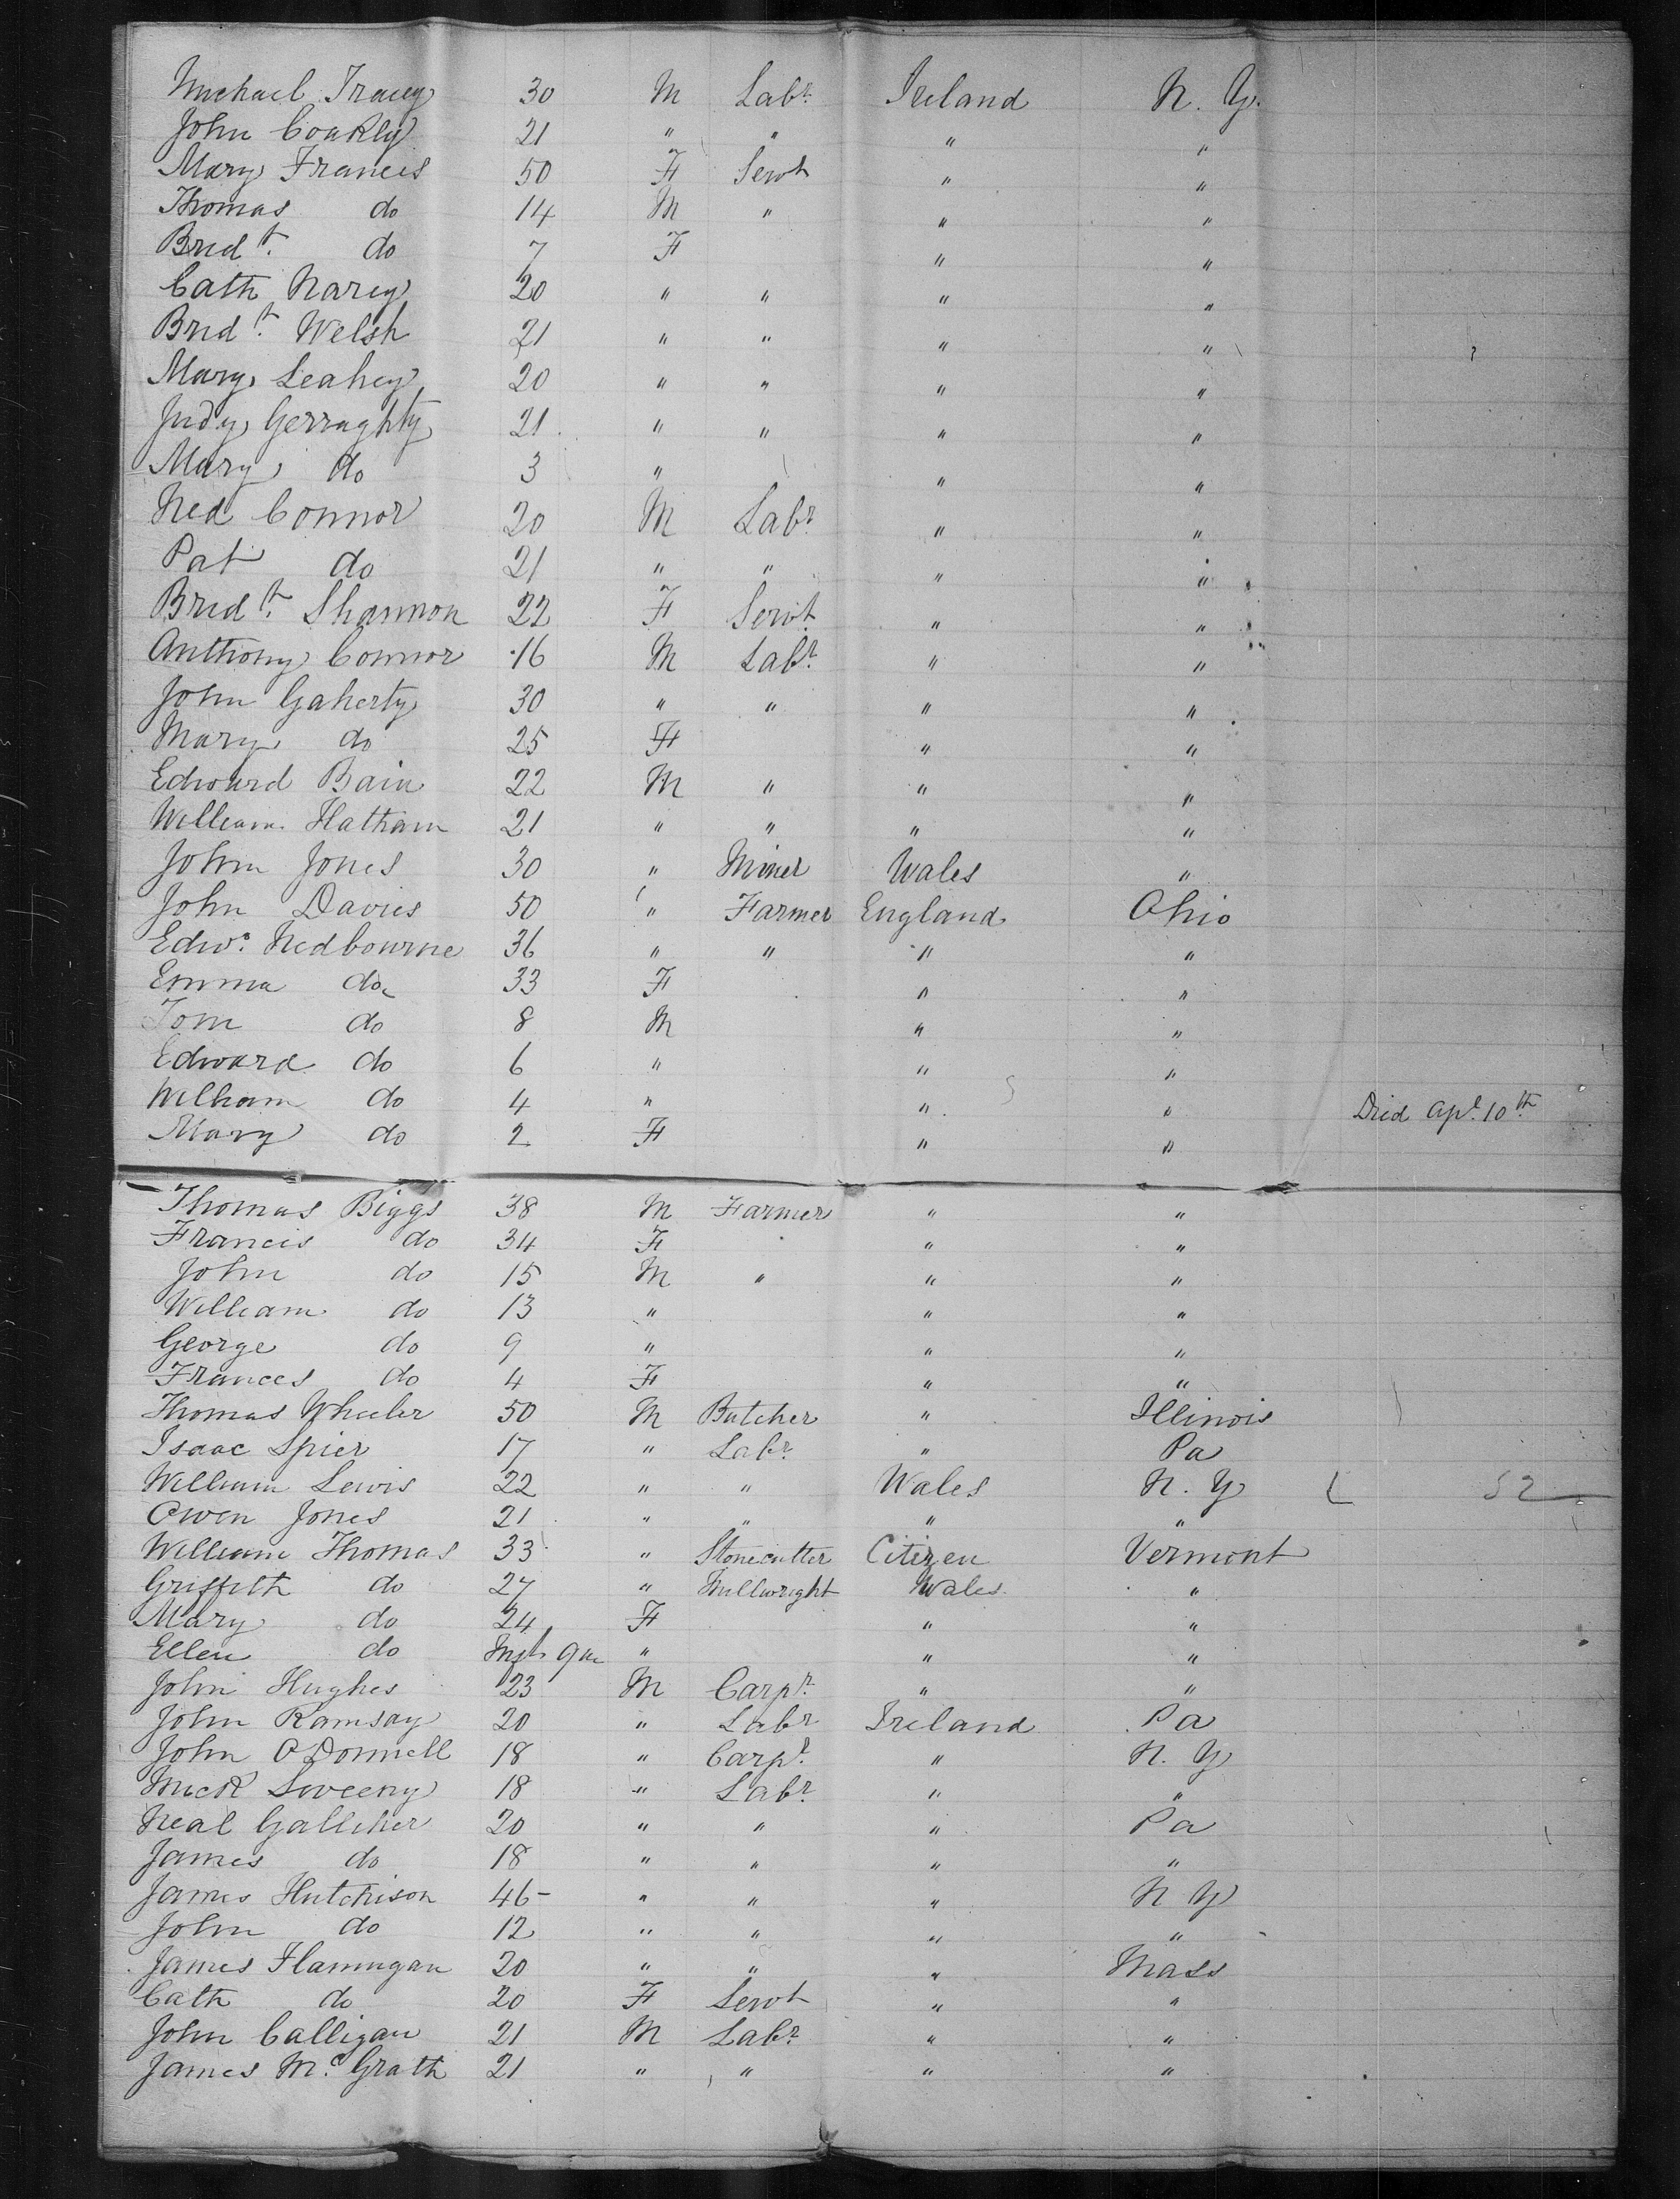 Michael Tracey 30 M Labr. Ireland N. Y.
John Coakly 21 " " " "
Mary Francis 50 F Servt " "
Thomas do 14 M " " "
Bridt. do 7 F " "
Cath Narey 20 " " " "
Bridt. Welsh 21 " " " "
Mary Leahey 20 " " " "
Judy Gerraghty 21 " " " "
Mary do 3 " " "
Ned Connor 20 M Labr. " "
Pat do 21 " " " "
Bridt. Shannon 22 F Servt " "
Anthony Connor 16 M Labr. " "
John Gaherty 30 " " " "
Mary do 25 F " "
Edward Bain 22 M " " "
William Hatham 21 " " " "
John Jones 30 " Miner Wales "
John Davies 50 " Farmer England Ohio
Edwd. Nedbourne 36 " " " "
Emma do 33 F " "
Tom do 8 M " "
Edward do 6 " " "
William do 4 " " " Died Apl. 10th
Mary do 2 F " "
Thomas Biggs 38 M Farmer " "
Francis do 34 F " "
John do 15 M " " "
William do 13 " " "
George do 9 " " "
Frances do 4 F " "
Thomas Wheeler 50 M Butcher " Illinois
Isaac Spier 17 " Labr. " Pa
William Lewis 22 " " Wales N. Y 52
Owen Jones 21 " " " "
William Thomas 33 " Stonecutter Citizen Vermont
Griffith do 27 " Millwright Wales "
Mary do 24 F " "
Ellen do Inft 9m " " "
John Hughes 23 M Carpr. " "
John Ramsay 20 " Labr Ireland Pa
John O Donnell 18 " Carpr. " N. Y
Mick Sweeny 18 " Labr. " "
Neal Galliher 20 " " " Pa
James do 18 " " " "
James Hutchison 46 " " " N Y
John do 12 " " " "
James Flannigan 20 " " " Mass
Cath do 20 F Servt " "
John Calligan 21 M Labr. " "
James Mc. Grath 21 " " " "